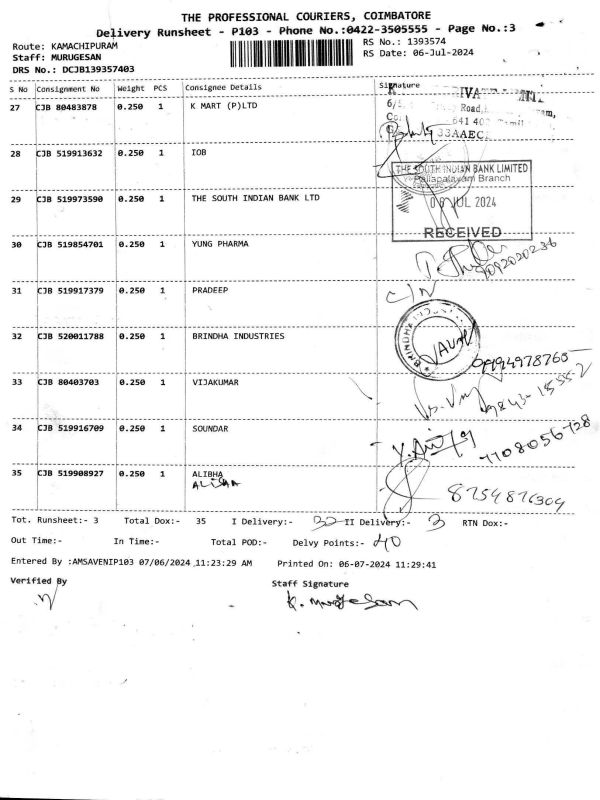 THE PROFESSIONAL COURIERS, COIMBATORE
Delivery Runsheet - P103 - Phone No.:0422-3505555 - Page No.:3
Route: KAMACHIPURAM
RS No.: 1393574
Staff: MURUGESAN
RS Date: 06-Jul-2024
DRS No.: DCJB139357403
S No Consignment No Weight PCS Consignee Details Signature
27 CJB 80483878 0.250 1 K MART (P)LTD
Road,
641 402
33AAEC
28 CJB 519913632 0.250 1 IOB
THE SOUTH INDIAN BANK LIMITED
Pallapalayam Branch
29 CJB 519973590 0.250 1 THE SOUTH INDIAN BANK LTD
06 JUL 2024
RECEIVED
30 CJB 519854701 0.250 1 YUNG PHARMA
9092020236
31 CJB 519917379 0.250 1 PRADEEP
C/N
32 CJB 520011788 0.250 1 BRINDHA INDUSTRIES
BRINDHA
9994978765
33 CJB 80403703 0.250 1 VIJAKUMAR
9843-15552
34 CJB 519916709 0.250 1 SOUNDAR
7708056728
35 CJB 519908927 0.250 1 ALIBHA
8754876304
Tot. Runsheet:- 3 Total Dox:- 35 I Delivery:- 32 II Delivery:- 3 RTN Dox:-
Out Time:- In Time:- Total POD:- Delvy Points:- 40
Entered By :AMSAVENIP103 07/06/2024 11:23:29 AM Printed On: 06-07-2024 11:29:41
Verified By Staff Signature
K. Murugesan